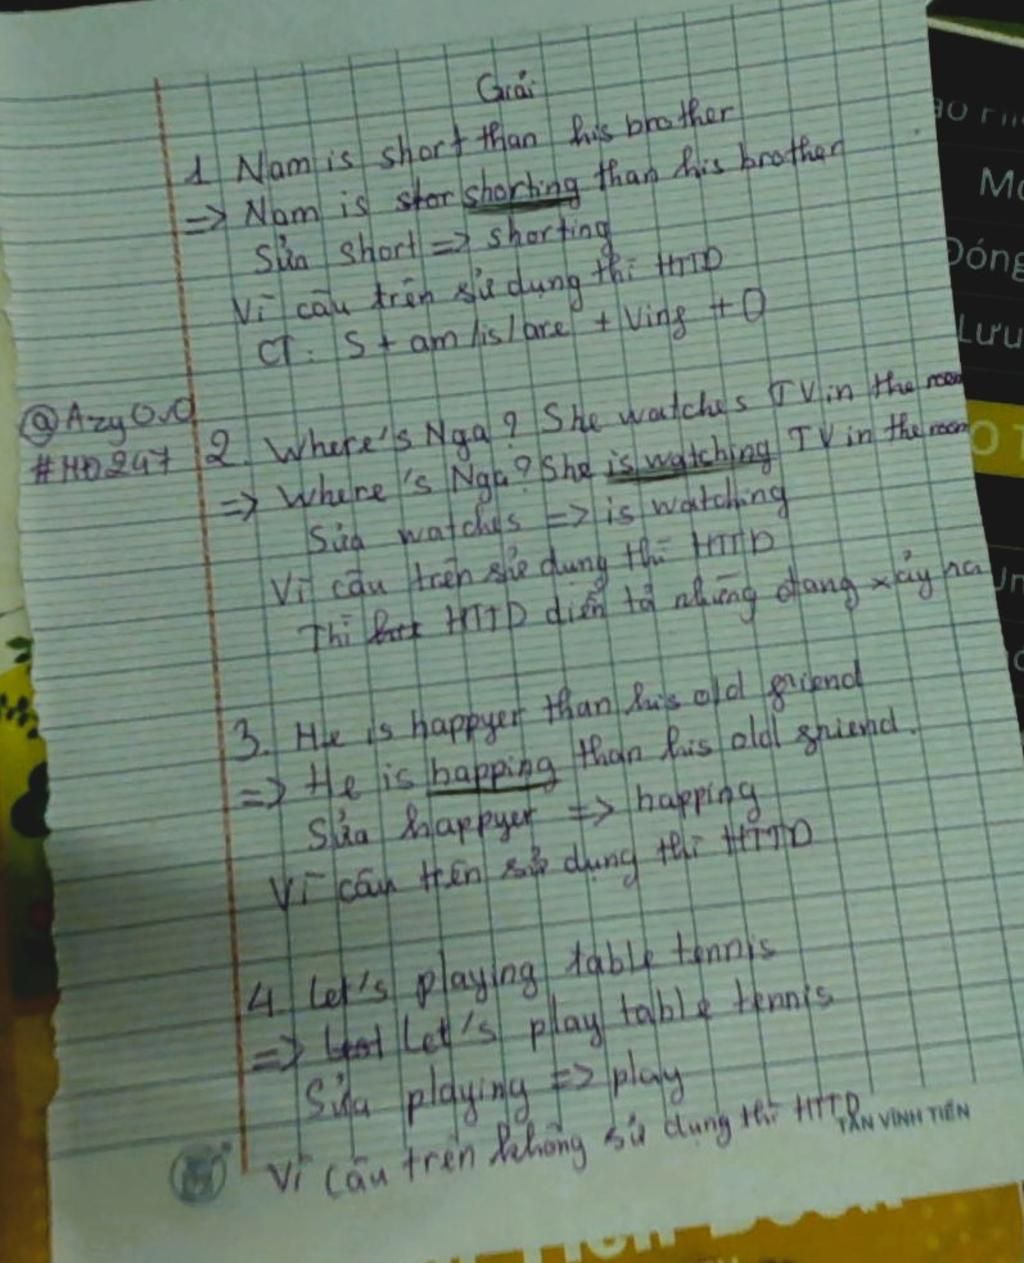 Giải
1 Nam is short than his brother
=> Nam is stor shorting than his brother
Sửa short => shorting
Vì câu trên sử dụng thì HTTD
CT: S + am/is/are + Ving + O
@AzyO.O
#HĐ247
2. Where's Nga? She watches TV in the room
=> Where's Nga? She is watching TV in the room
Sửa watches => is watching
Vì câu trên sử dụng thì HTTD
Thì HTTD diễn tả những đang xảy ra
3. He is happyer than his old friend
=> He is happing than his old friend.
Sửa happyer => happing
Vì câu trên sử dụng thì HTTD
4. Let's playing table tennis
=> Let's play table tennis
Sửa playing => play
Vì câu trên không sử dụng thì HTTD
TÂN VĨNH TIẾN
Đóng
Lưu